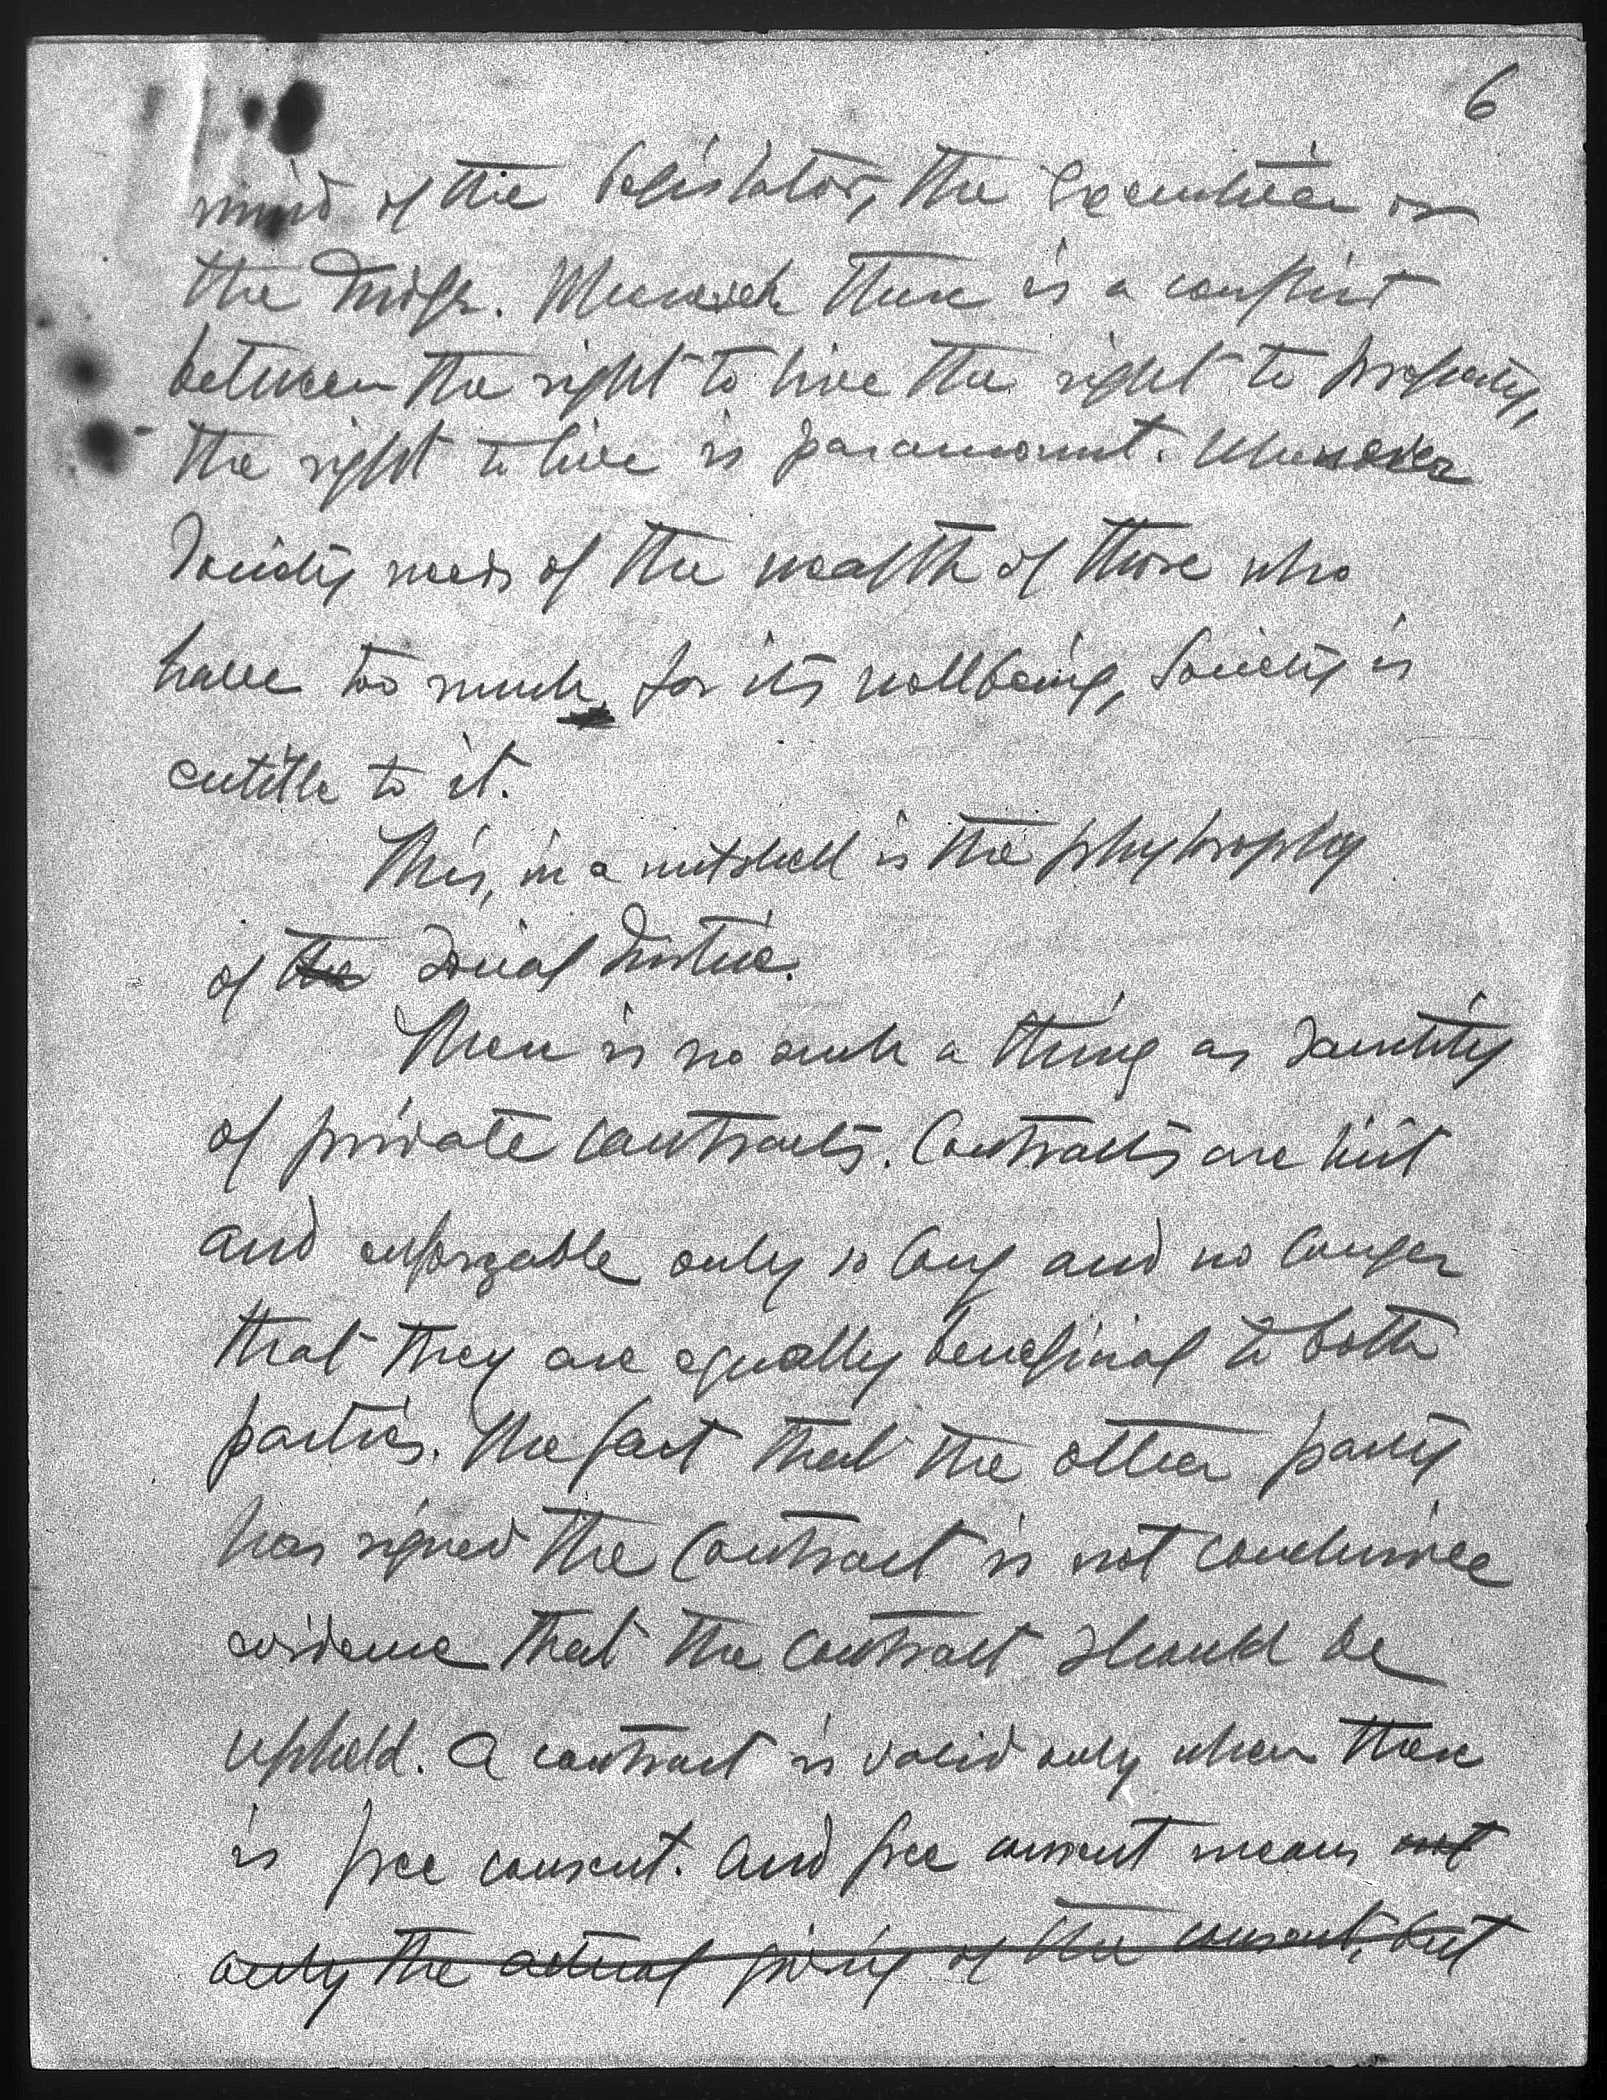 6
mind of the legislator, the Executive or
the Judge. Whenever there is a conflict
between the right to live the right to property,
the right to live is paramount. Whenever
Society needs of the wealth of those who
have too much for its wellbeing, Society is
entitle to it.
This, in a nutshell is the
of the Social Justice.
There is no such a thing as Sanctity
of private contracts. Contracts are
and only so long and no longer
that they are equally beneficial to both
parties. The fact that the other party
has signed the contract is not conclusive
evidence that the contract should be
upheld. A contract is valid only when there
is free consent. And free consent means not
only the actual giving of the consent, but